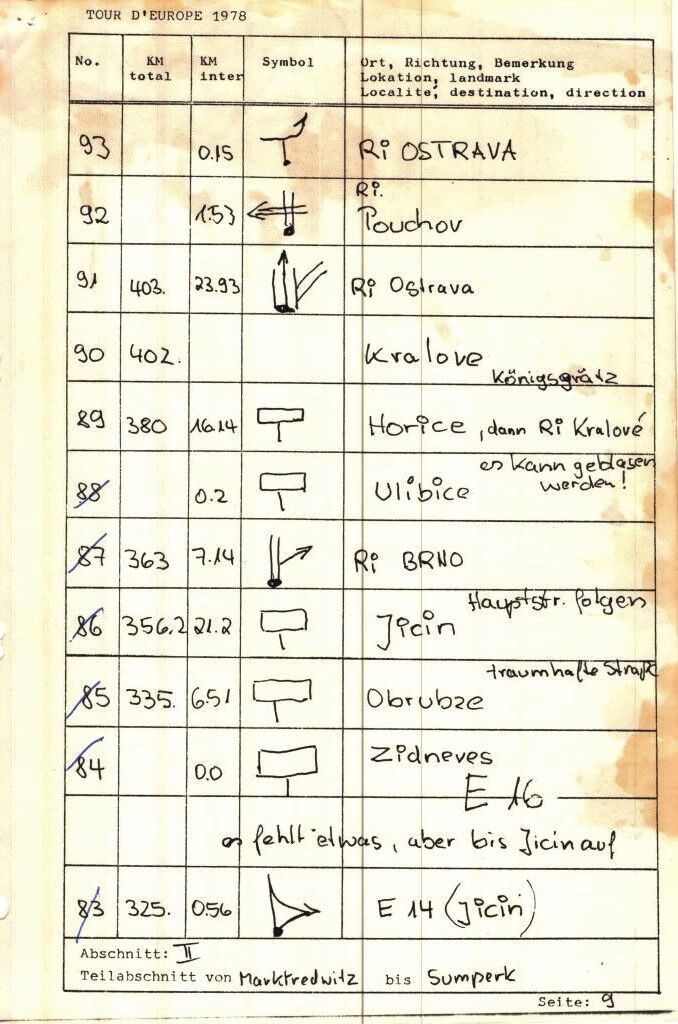 TOUR D'EUROPE 1978
No. KM total KM inter Symbol Ort, Richtung, Bemerkung
Lokation, landmark
Localité, destination, direction
93 0.15 Ri OSTRAVA
92 1.53 Ri. Pouchov
91 403. 23.93 Ri Ostrava
90 402. Kralove
Königsgrätz
89 380 16.14 Horice, dann Ri Kralové
es kann geblasen
werden!
88 0.2 Ulibice
87 363 7.14 Ri BRNO
Hauptstr. folgen
86 356.2 21.2 Jicin
traumhafte Straße
85 335. 6.51 Obrubze
84 0.0 Zidneves
E 16
es fehlt etwas, aber bis Jicin auf
83 325. 0.56 E 14 (Jicin)
Abschnitt: II
Teilabschnitt von Marktredwitz bis Sumperk
Seite: 9